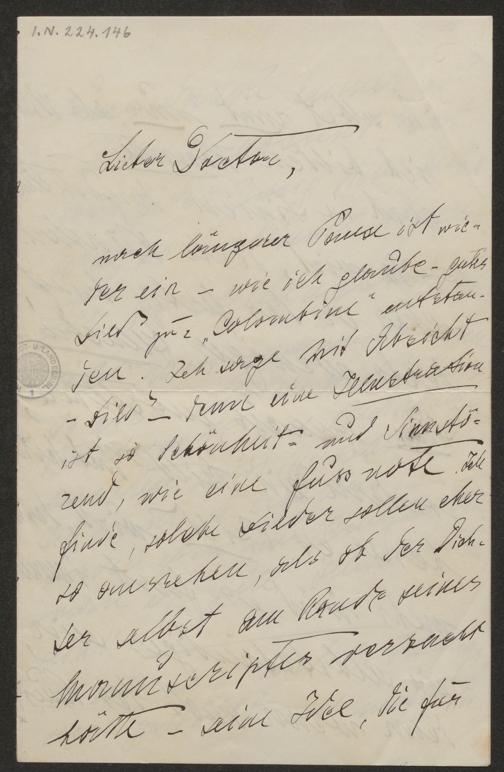 I.N. 224.146
Lieber Doctor,
nach längerer Pause ist wie-
der ein – wie ich glaube – gutes
Bild zu „Colombine" entstan-
den. Ich sage mit Absicht
– Bild – denn eine Illustration
ist so Schönheit- und Sinnstö-
rend, wie eine Fussnote. Ich
finde, solche Bilder sollen eher
so aussehen, als ob der Dich-
ter selbst am Rande seines
Manuscriptes versucht
hätte – eine Idee, die für